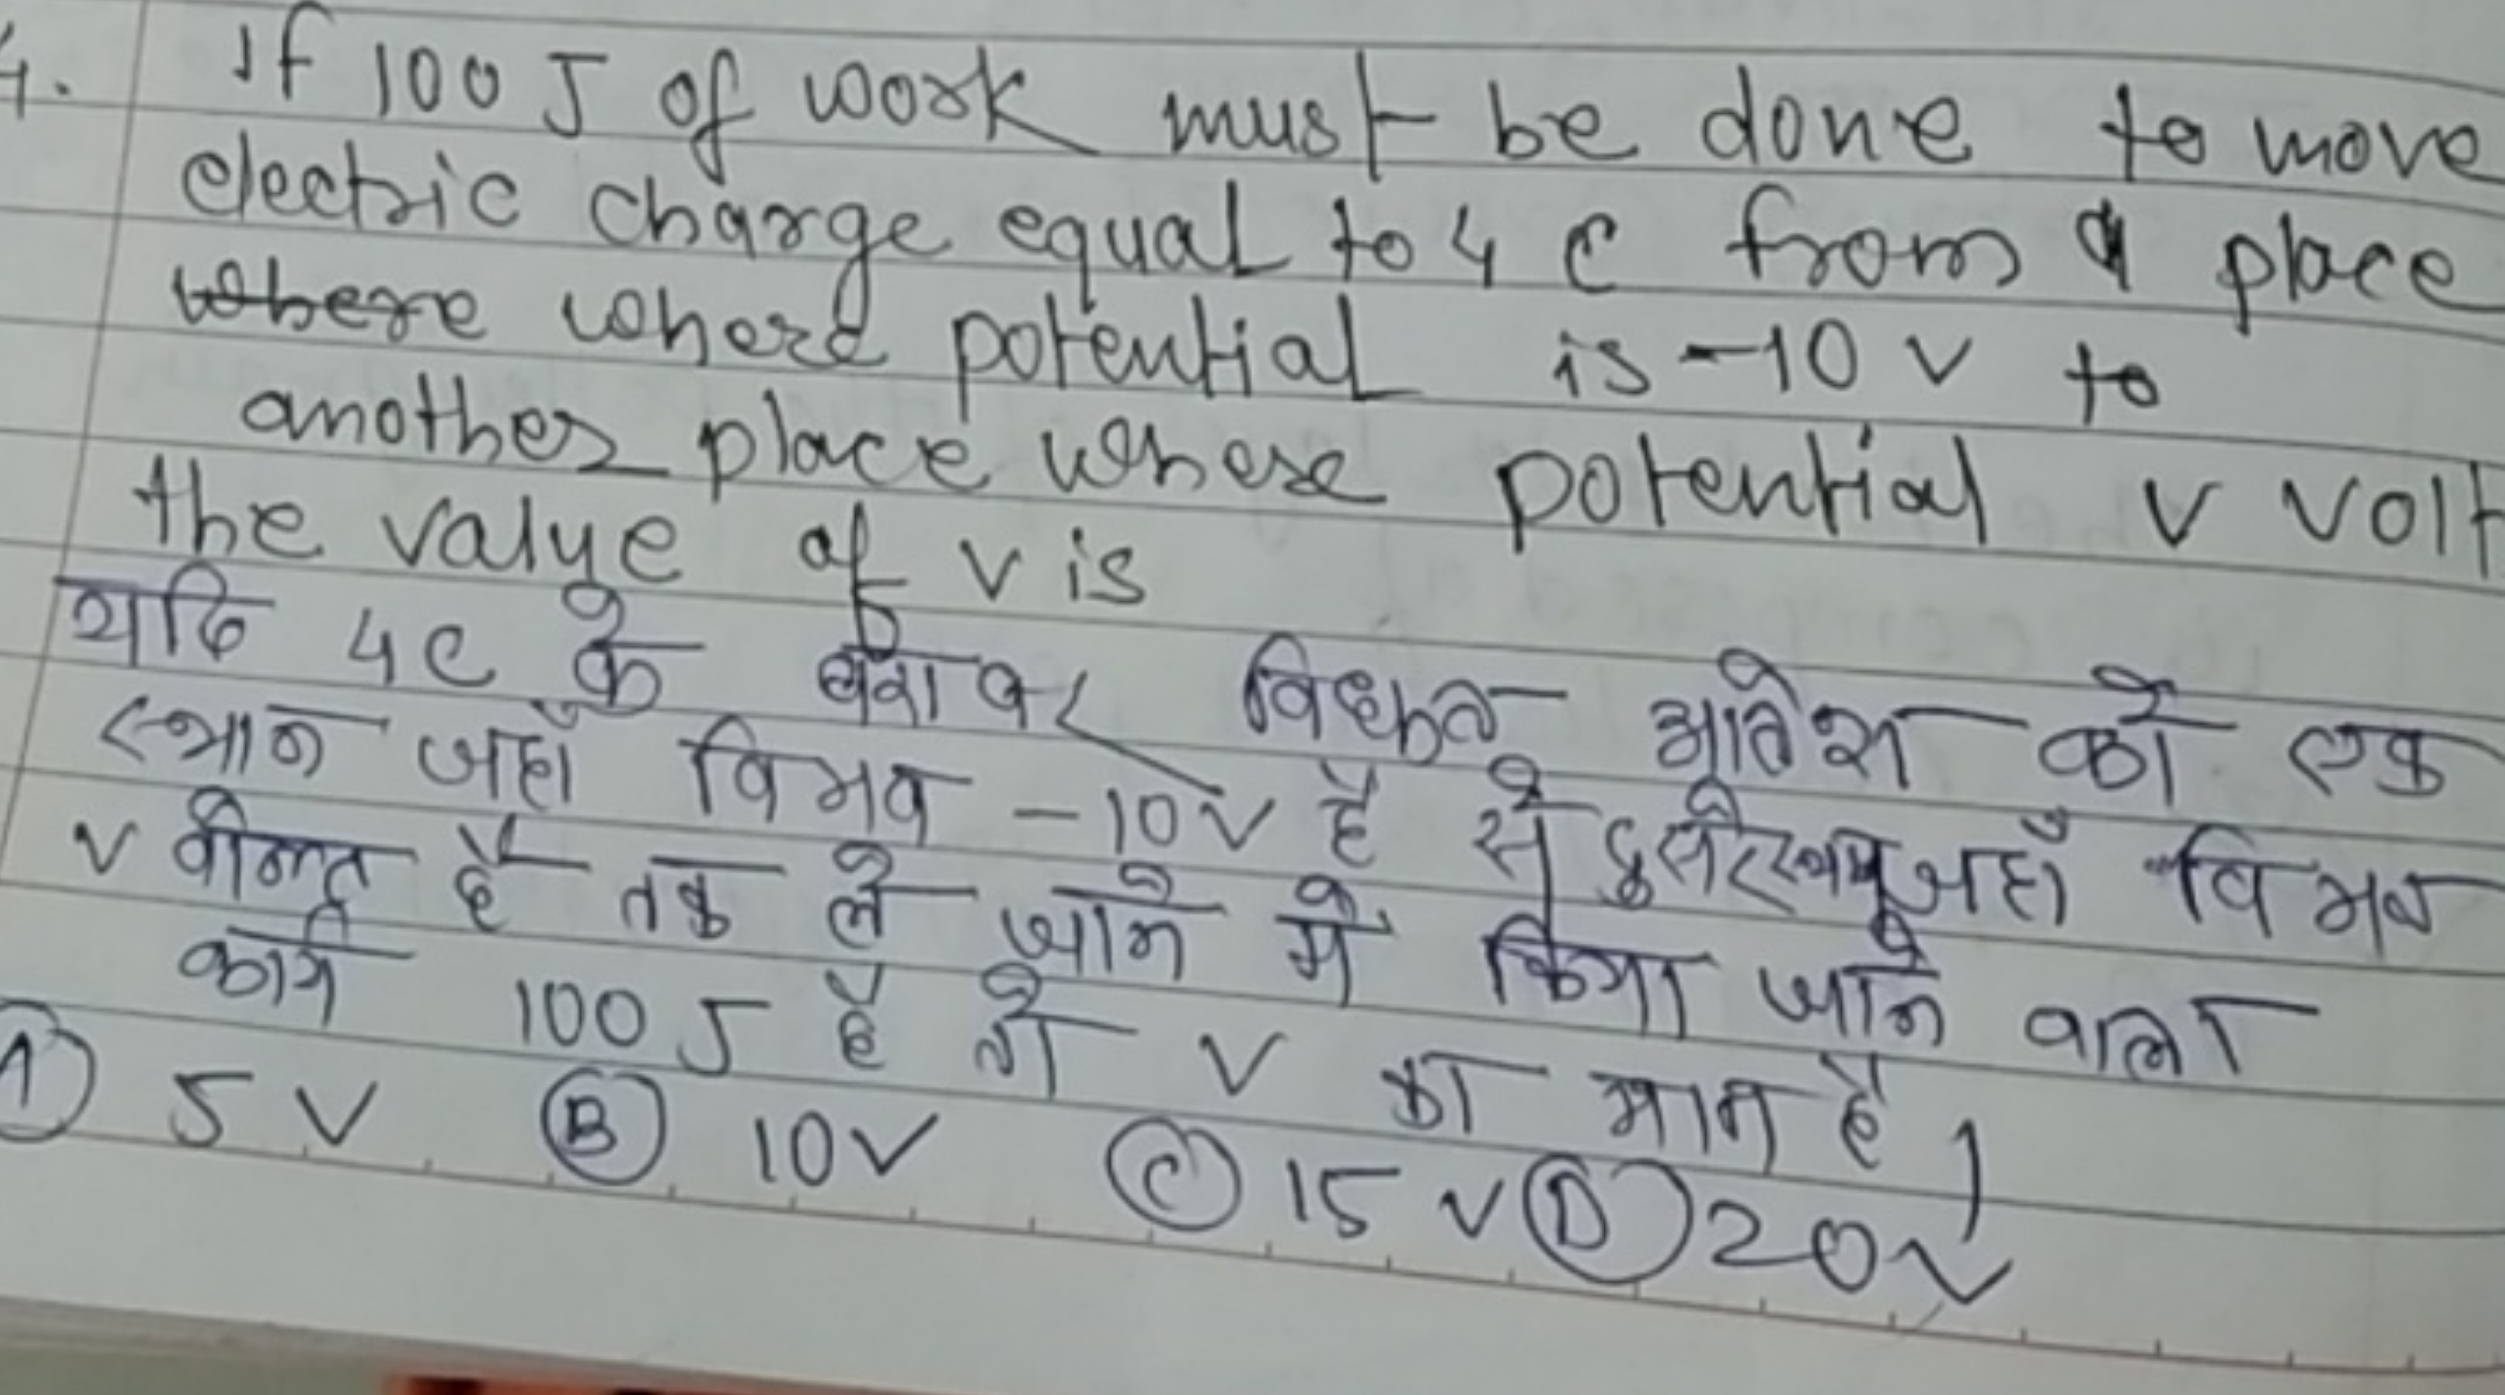 4. If 100 J of work must be done to move
electric charge equal to 4 C from a place
where where potential is -10 V to
another place where potential V volt
the value of V is
यदि 4C के बराबर विधुत आवेश को एक
स्थान जहाँ विभव -10V है से दुसरे स्थान जहाँ विभव
V वोल्ट है तक ले जाने में किया जाने वाला
कार्य 100 J है तो V का मान है।
A 5 V B 10V C 15 V D 20V